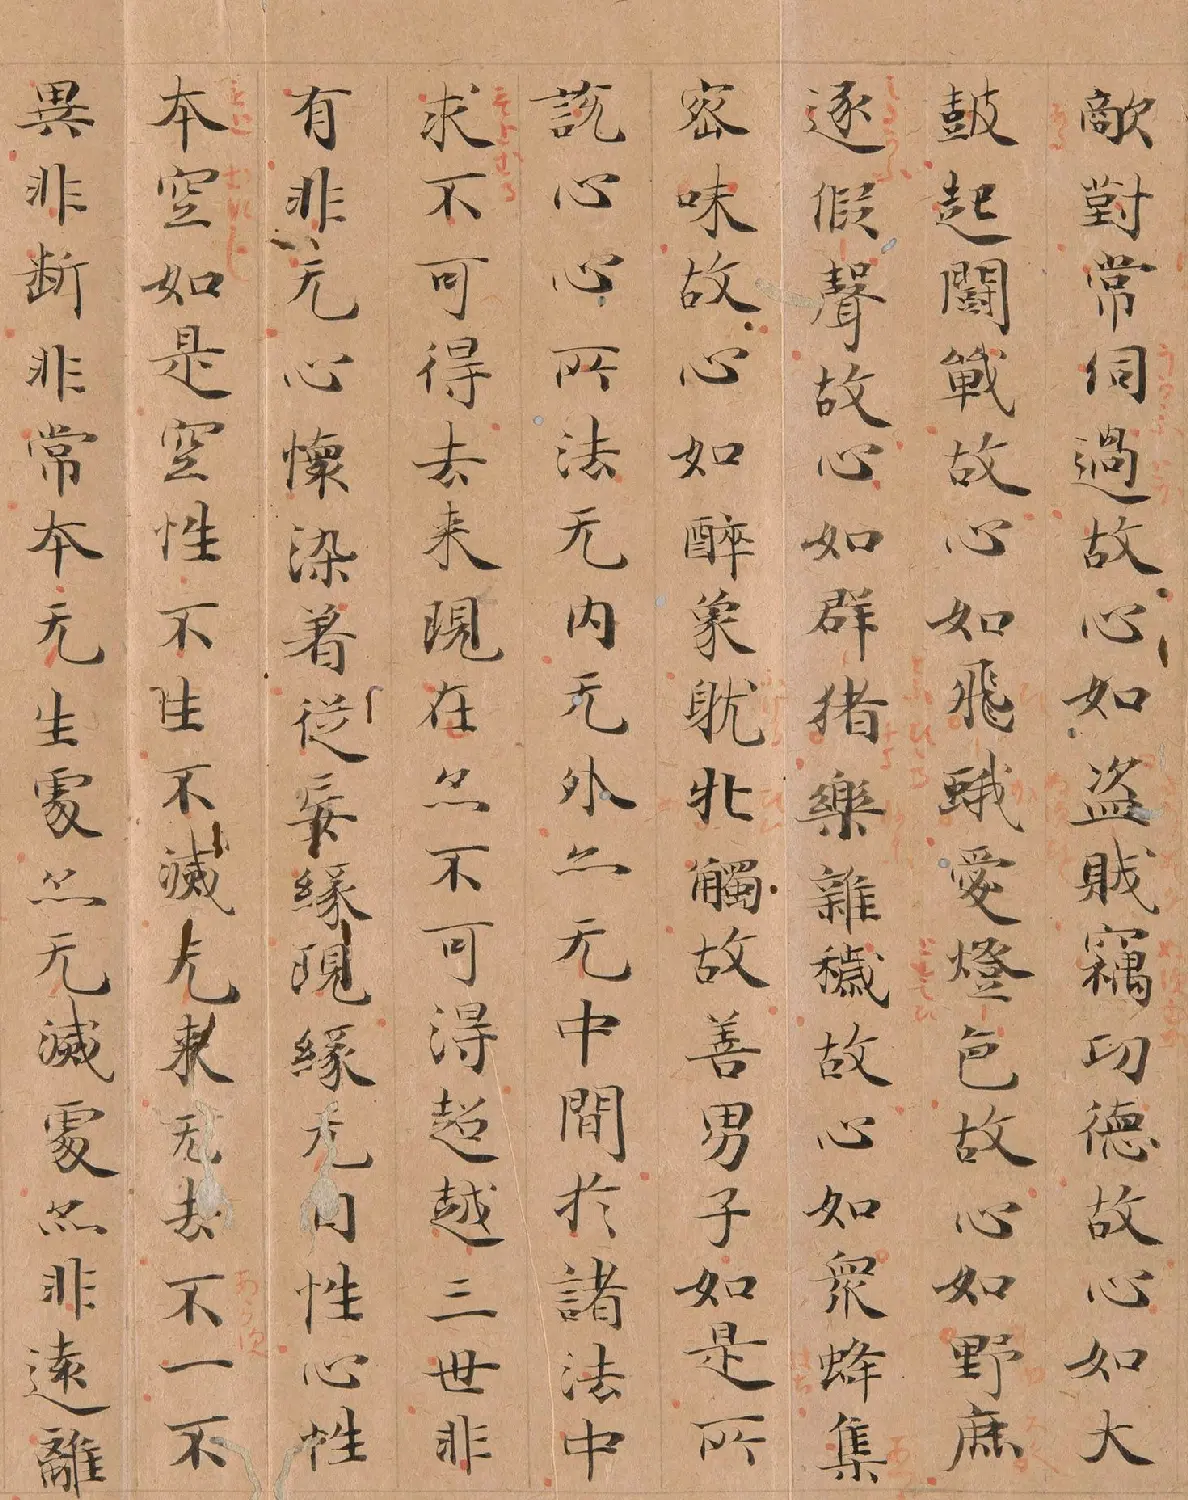 敵對常伺過故心如盗賊竊功德故心如大
鼓起鬪戰故心如飛蛾愛燈色故心如野鹿
逐假聲故心如群猪樂雜穢故心如衆蜂集
蜜味故心如醉象躭牝觸故善男子如是所
説心心所法无内无外亦无中間於諸法中
求不可得去来現在亦不可得超越三世非
有非无心懷染着從妄緣現緣无自性心性
本空如是空性不生不滅无来无去不一不
異非断非常本无生處亦无滅處亦非遠離